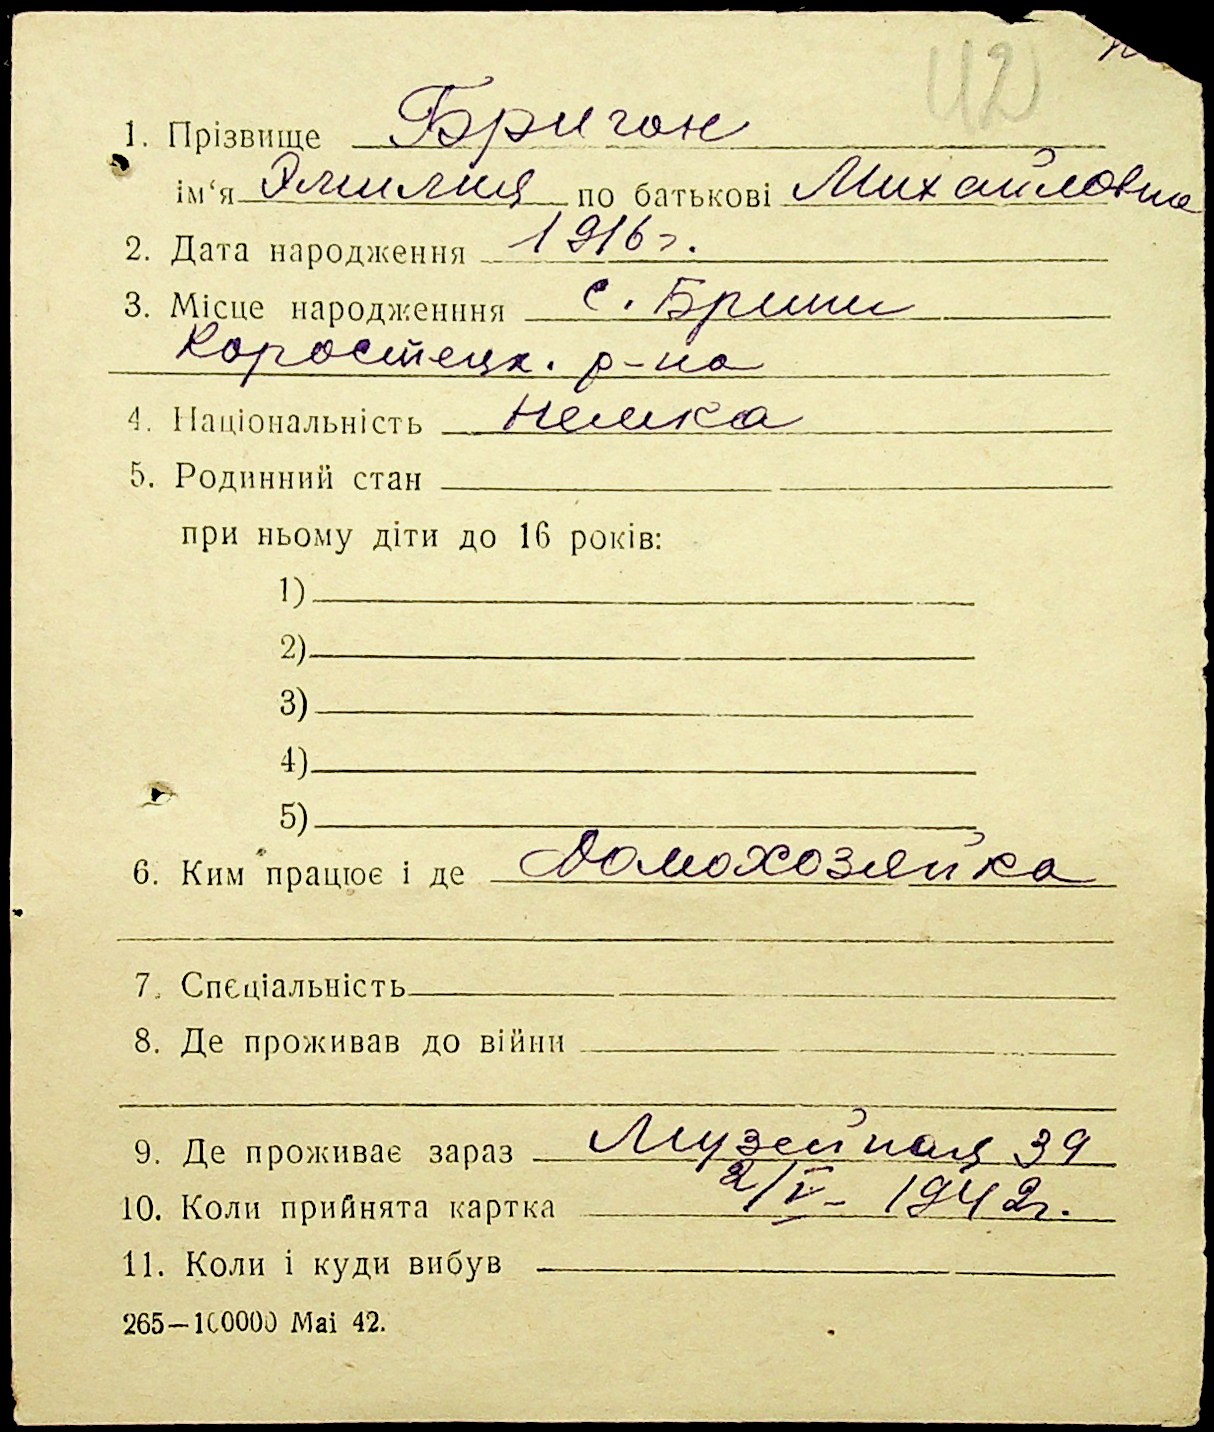 42
1. Прізвище Бригон
ім‘я Эмилия по батькові Михайловна
2. Дата народження 1916 г.
3. Місце народженння с. Бриши
Коростецк. р-на
4. Національність немка
5. Родинний стан
при ньому діти до 16 років:
1)
2)
3)
4)
5)
6. Ким працює і де Домохозяйка
7. Спєціальність
8. Де проживав до війни
9. Де проживає зараз Музейная 39
10. Коли прийнята картка 2/V- 1942г.
11. Коли і куди вибув
265—100000 Маі 42.